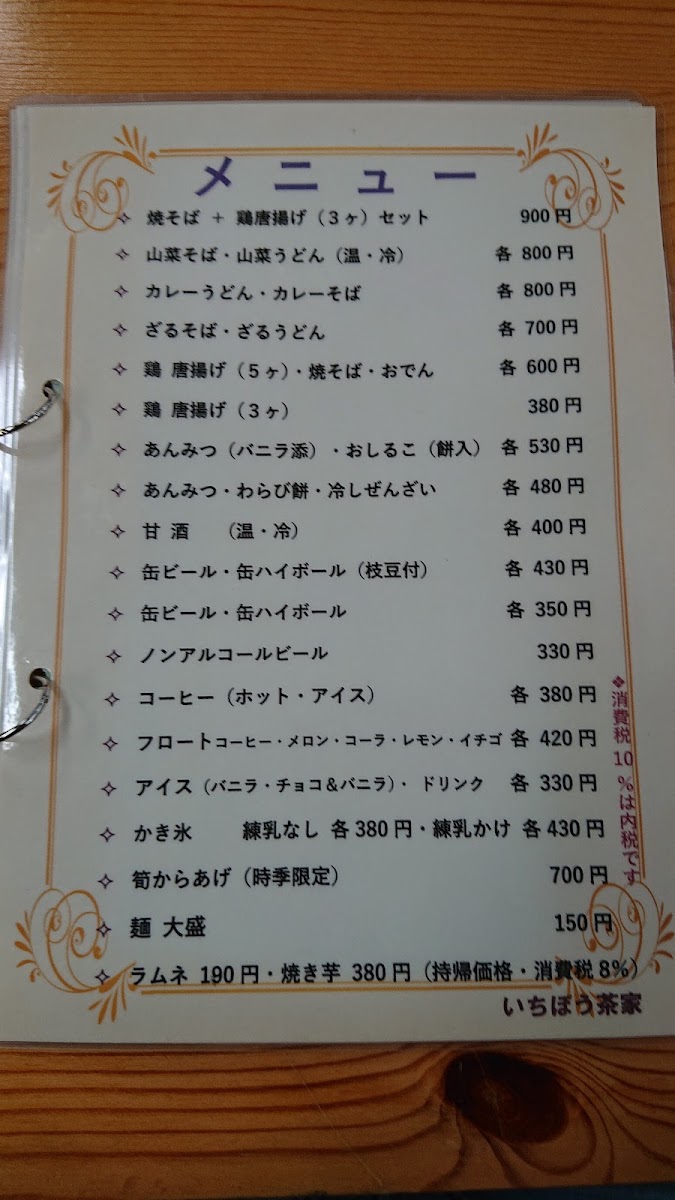 メニュー
焼そば + 鶏唐揚げ（3ヶ）セット 900円
山菜そば・山菜うどん（温・冷） 各 800円
カレーうどん・カレーそば 各 800円
ざるそば・ざるうどん 各 700円
鶏 唐揚げ（5ヶ）・焼そば・おでん 各 600円
鶏 唐揚げ（3ヶ） 380円
あんみつ（バニラ添）・おしるこ（餅入） 各 530円
あんみつ・わらび餅・冷しぜんざい 各 480円
甘 酒 （温・冷） 各 400円
缶ビール・缶ハイボール（枝豆付） 各 430円
缶ビール・缶ハイボール 各 350円
ノンアルコールビール 330円
コーヒー（ホット・アイス） 各 380円
フロートコーヒー・メロン・コーラ・レモン・イチゴ 各 420円
アイス（バニラ・チョコ＆バニラ）・ ドリンク 各 330円
かき氷 練乳なし 各380円・練乳かけ 各430円
筍からあげ（時季限定） 700円
麺 大盛 150円
ラムネ 190円・焼き芋 380円（持帰価格・消費税8%）
いちぼう茶家
❖消費税10%は内税です